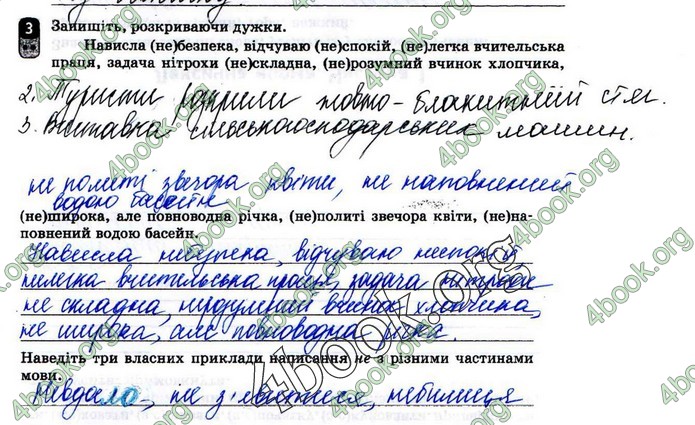 3 Запишіть, розкриваючи дужки.
Нависла (не)безпека, відчуваю (не)спокій, (не)легка вчительська
праця, задача нітрохи (не)складна, (не)розумний вчинок хлопчика,
2. Туристи жовто-блакитний стяг.
3. Виставка сільськогосподарських машин.
не политі звечора квіти, не наповнений
водою басейн
(не)широка, але повноводна річка, (не)политі звечора квіти, (не)на-
повнений водою басейн.
Нависла небезпека, відчуваю неспокій,
нелегка вчительська праця, задача нітрохи
не складна, нерозумний вчинок хлопчика,
не широка, але повноводна річка.
Наведіть три власних приклади написання не з різними частинами
мови.
Невдало, не з'явитися, небилиця
4book.org